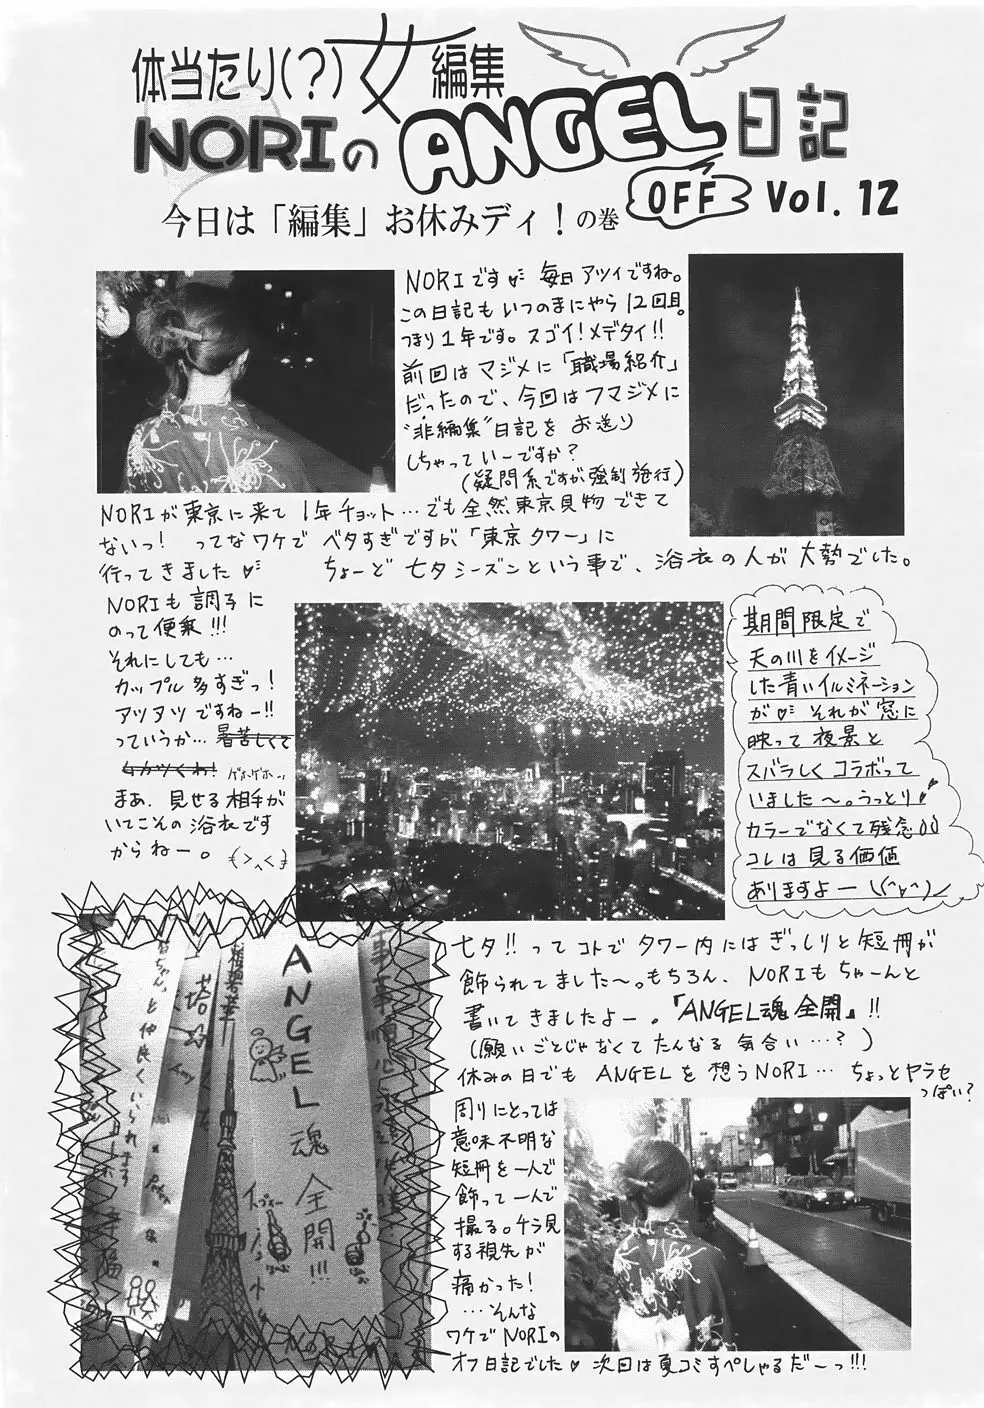 体当たり(?)女編集
NORIのANGEL日記
OFF Vol. 12
今日は「編集」お休みディ!の巻
NORIです 毎日アツイですね。
この日記もいつのまにやら12回目。
つまり1年です。スゴイ!メデタイ!!
前回はマジメに「職場紹介」
だったので、今回はフマジメに
"非編集"日記をお送り
しちゃっていーですか?
(疑問系ですが強制発行)
NORIが東京に来て1年チョット…でも全然東京見物できて
ないっ! ってなワケでベタすぎですが「東京タワー」に
行ってきました
ちょーど七夕シーズンという事で、浴衣の人が大勢でした。
NORIも調子に
のって便乗!!!
それにしても…
カップル多すぎっ!
アツアツですねー!!
っていうか…暑苦しくて
ムカツくわ! ゲホゲホ…
まあ、見せる相手が
いてこその浴衣です
からねー。
期間限定で
天の川をイメージ
した青いイルミネーション
が それが窓に
映って夜景と
スバラしくコラボって
いました〜。うっとり
カラーでなくて残念
コレは見る価値
ありますよー \(^v^)/
七夕!!ってコトでタワー内にはぎっしりと短冊が
飾られてました〜。もちろん、NORIもちゃーんと
書いてきましたよー。「ANGEL魂全開」!!
(願いごとじゃなくてたんなる気合い…?)
休みの日でもANGELを想うNORI…ちょっとヤラセ
っぽい?
周りにとっては
意味不明な
短冊を一人で
飾って一人で
撮る。チラ見
する視先が
痛かった!
…そんな
ワケでNORIの
オフ日記でした♥ 次回は夏コミすぺしゃるだーっ!!!
ANGEL魂 全開!!!
と仲良くいられます
塔☆